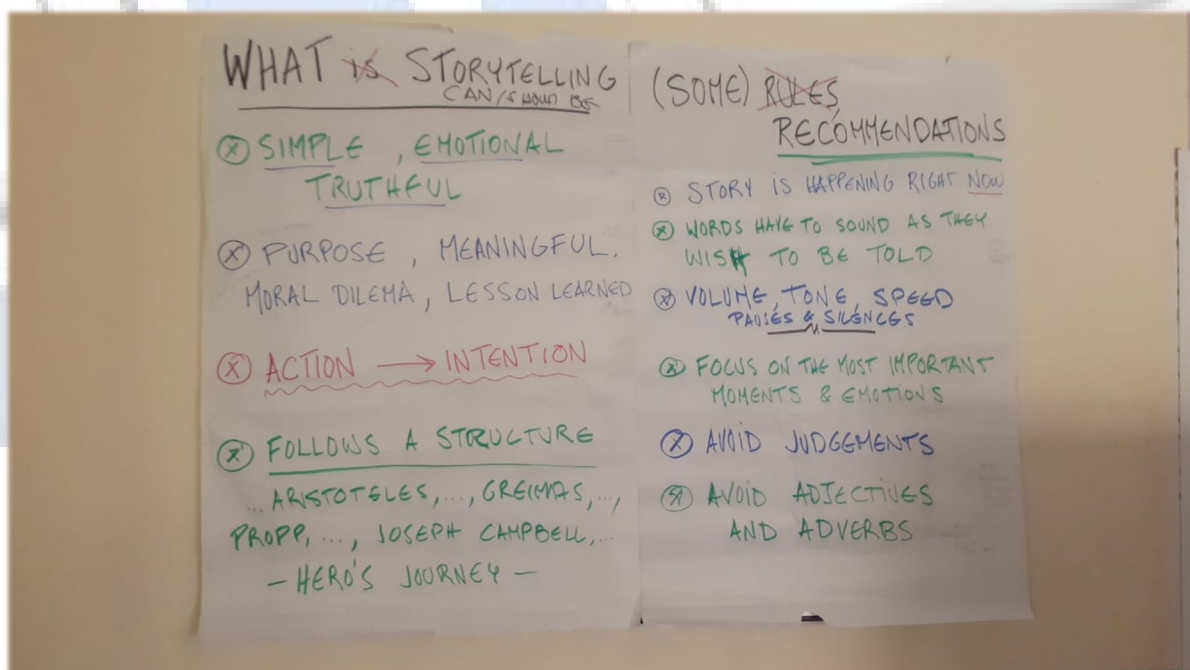 WHAT is STORYTELLING
CAN/SHOULD BE
ⓧ SIMPLE, EMOTIONAL
TRUTHFUL
ⓧ PURPOSE, MEANINGFUL.
MORAL DILEMA, LESSON LEARNED
ⓧ ACTION → INTENTION
ⓧ FOLLOWS A STRUCTURE
... ARISTOTELES, ..., GREIMAS, ...,
PROPP, ..., JOSEPH CAMPBELL, ...
- HERO'S JOURNEY -
(SOME) RULES
RECOMMENDATIONS
ⓧ STORY IS HAPPENING RIGHT NOW
ⓧ WORDS HAVE TO SOUND AS THEY
WISH TO BE TOLD
ⓧ VOLUME, TONE, SPEED
PAUSES & SILENCES
ⓧ FOCUS ON THE MOST IMPORTANT
MOMENTS & EMOTIONS
ⓧ AVOID JUDGEMENTS
ⓧ AVOID ADJECTIVES
AND ADVERBS